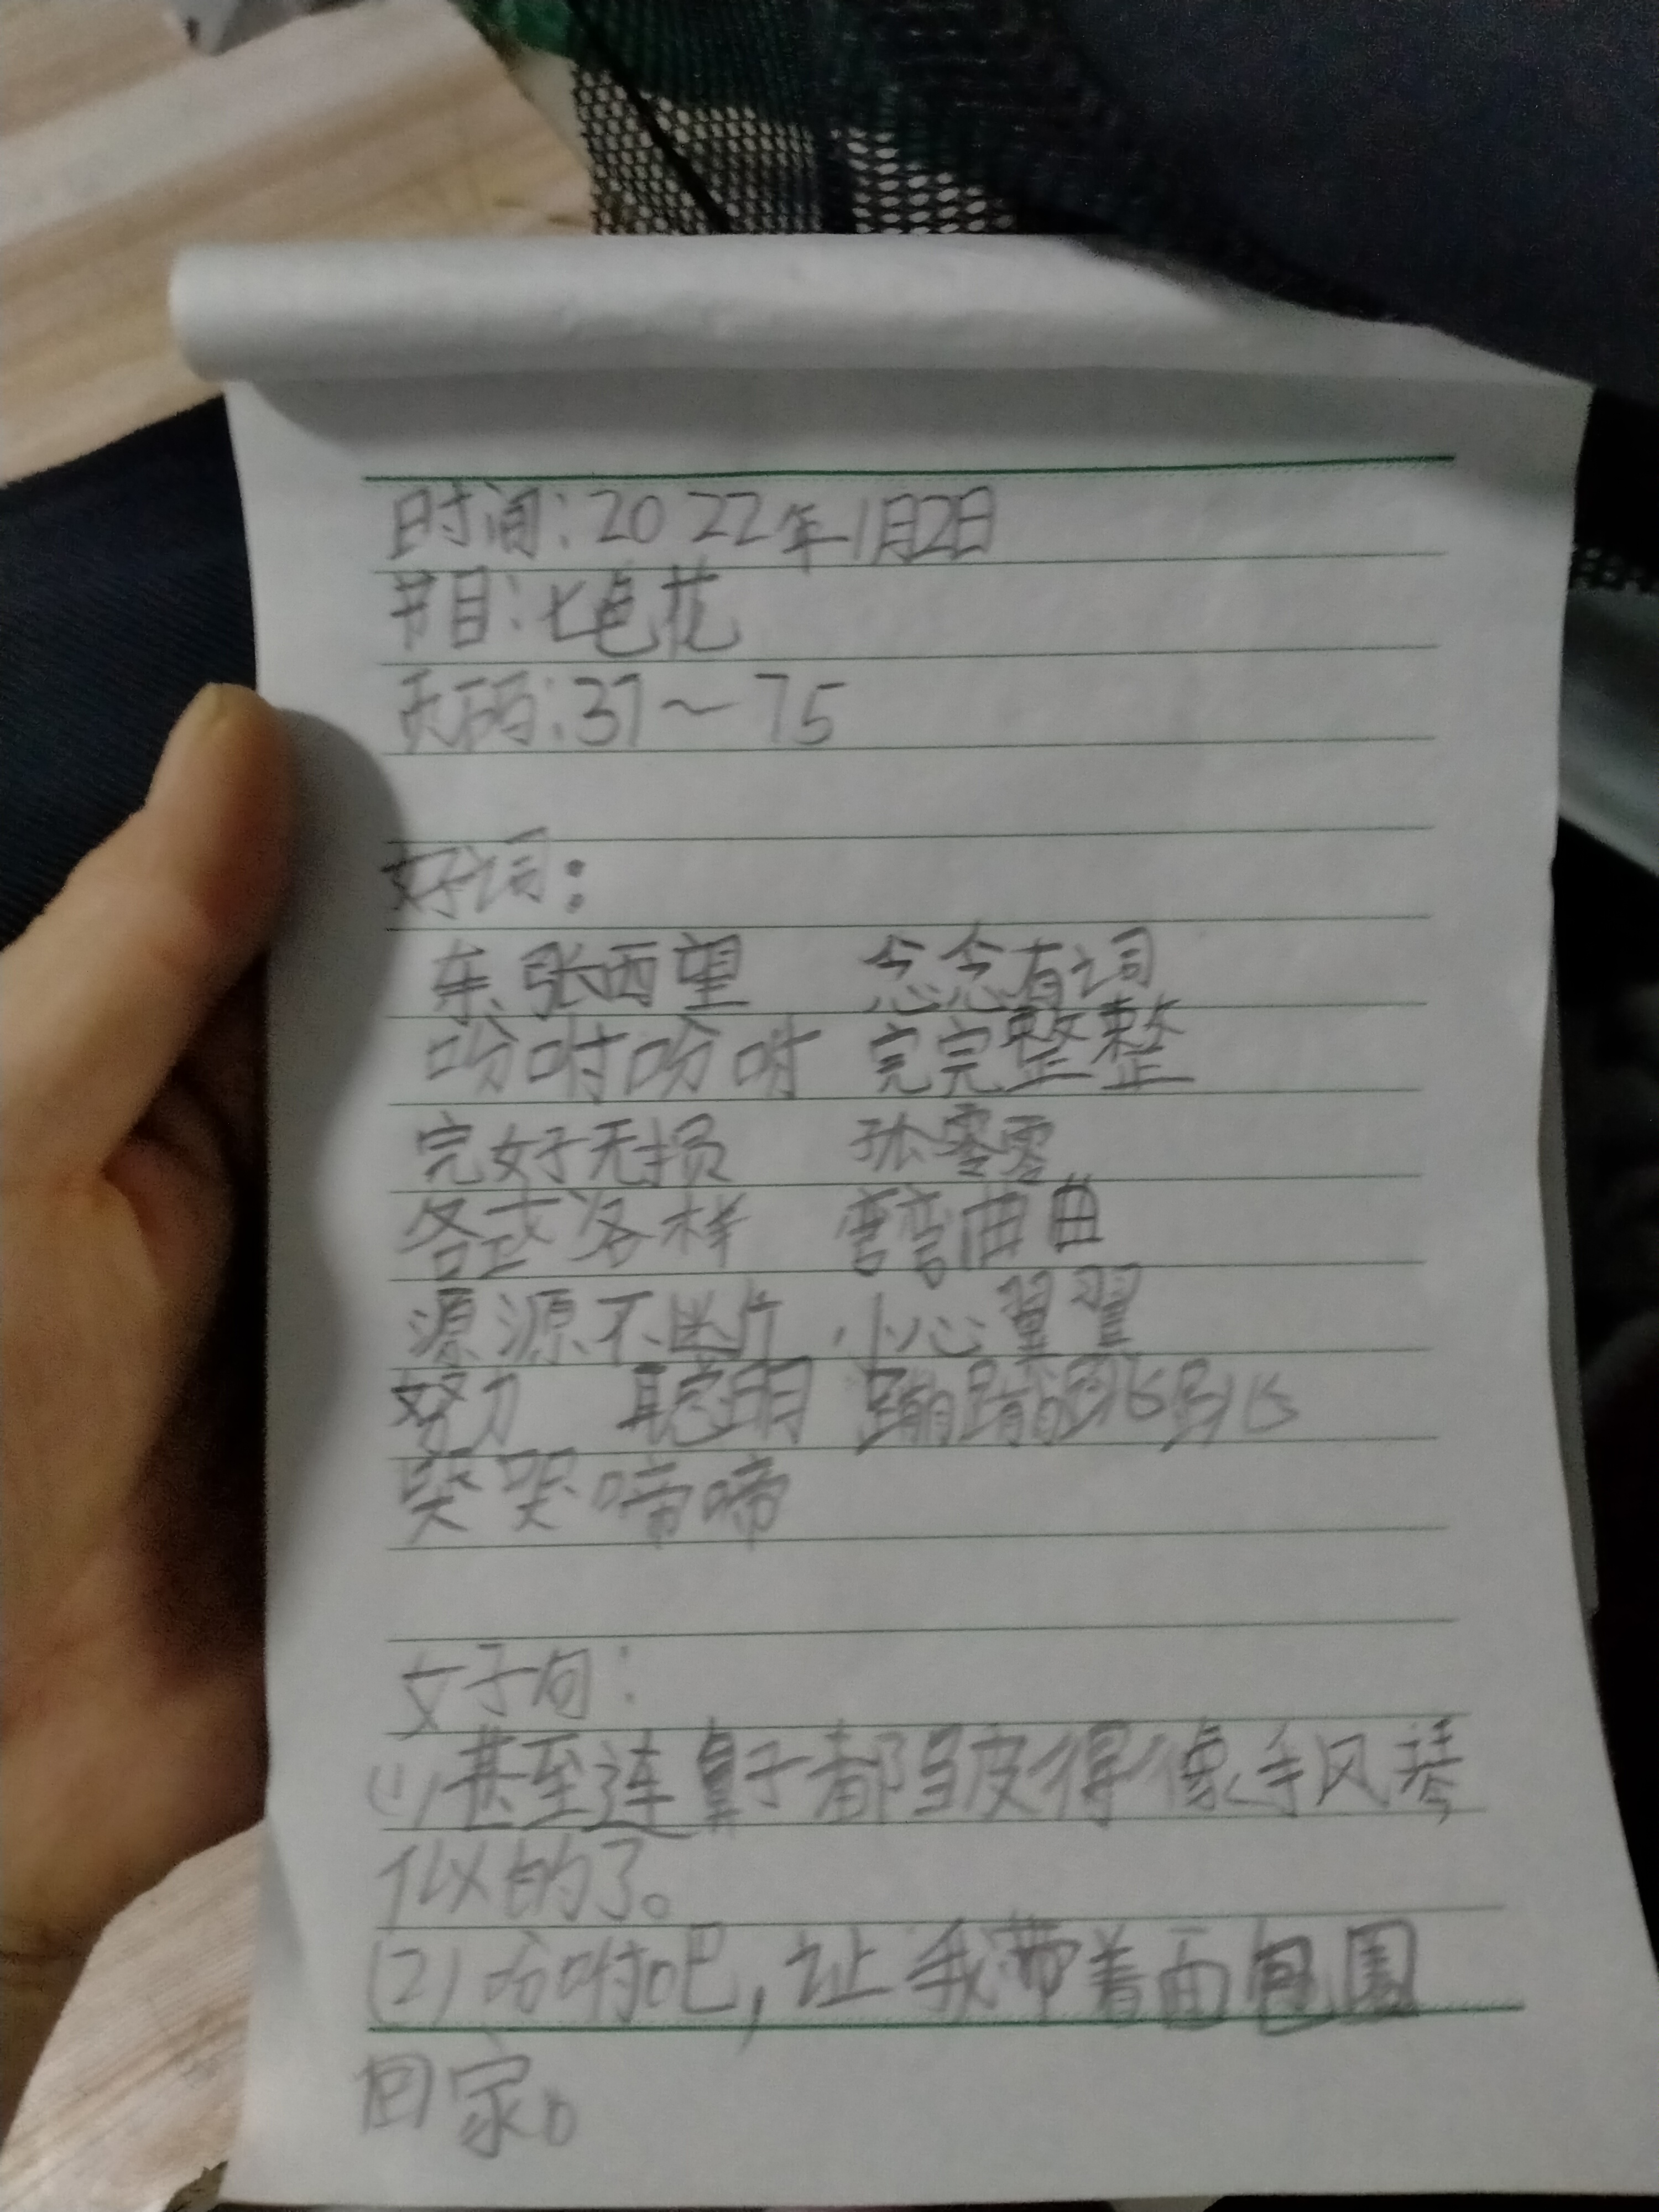 时间:2022年1月2日
节目:七色花
页码:37～75
好词:
东张西望 念念有词
吩咐吩咐 完完整整
完好无损 孤零零
各式各样 弯弯曲曲
源源不断 小心翼翼
努力 聪明 蹦蹦跳跳
哭哭啼啼
好句:
(1)甚至连鼻子都皱得像手风琴
似的了。
(2)吩咐吧,让我带着面包圈
回家。